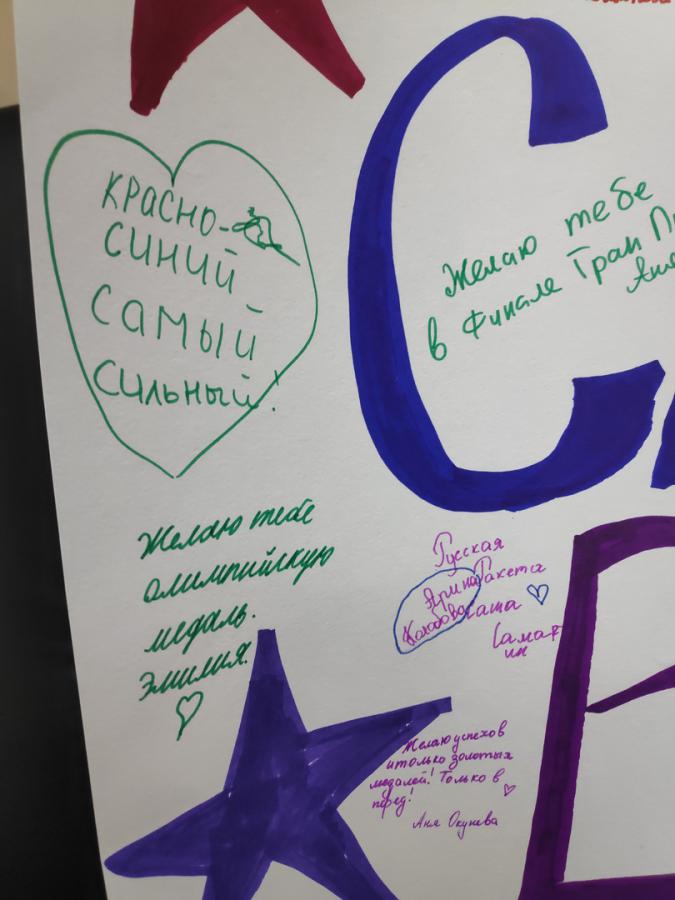 КРАСНО-
СИНИЙ
САМЫЙ
СИЛЬНЫЙ!
С
Желаю тебе
в Финале Гран
Аня
Желаю тебе
олимпийскую
медаль.
Эмилия.
Русская
Арина Ракета
Саша
Самая
Желаю успехов
и только золотых
медалей! Только в
перёд!
Аня Окунева